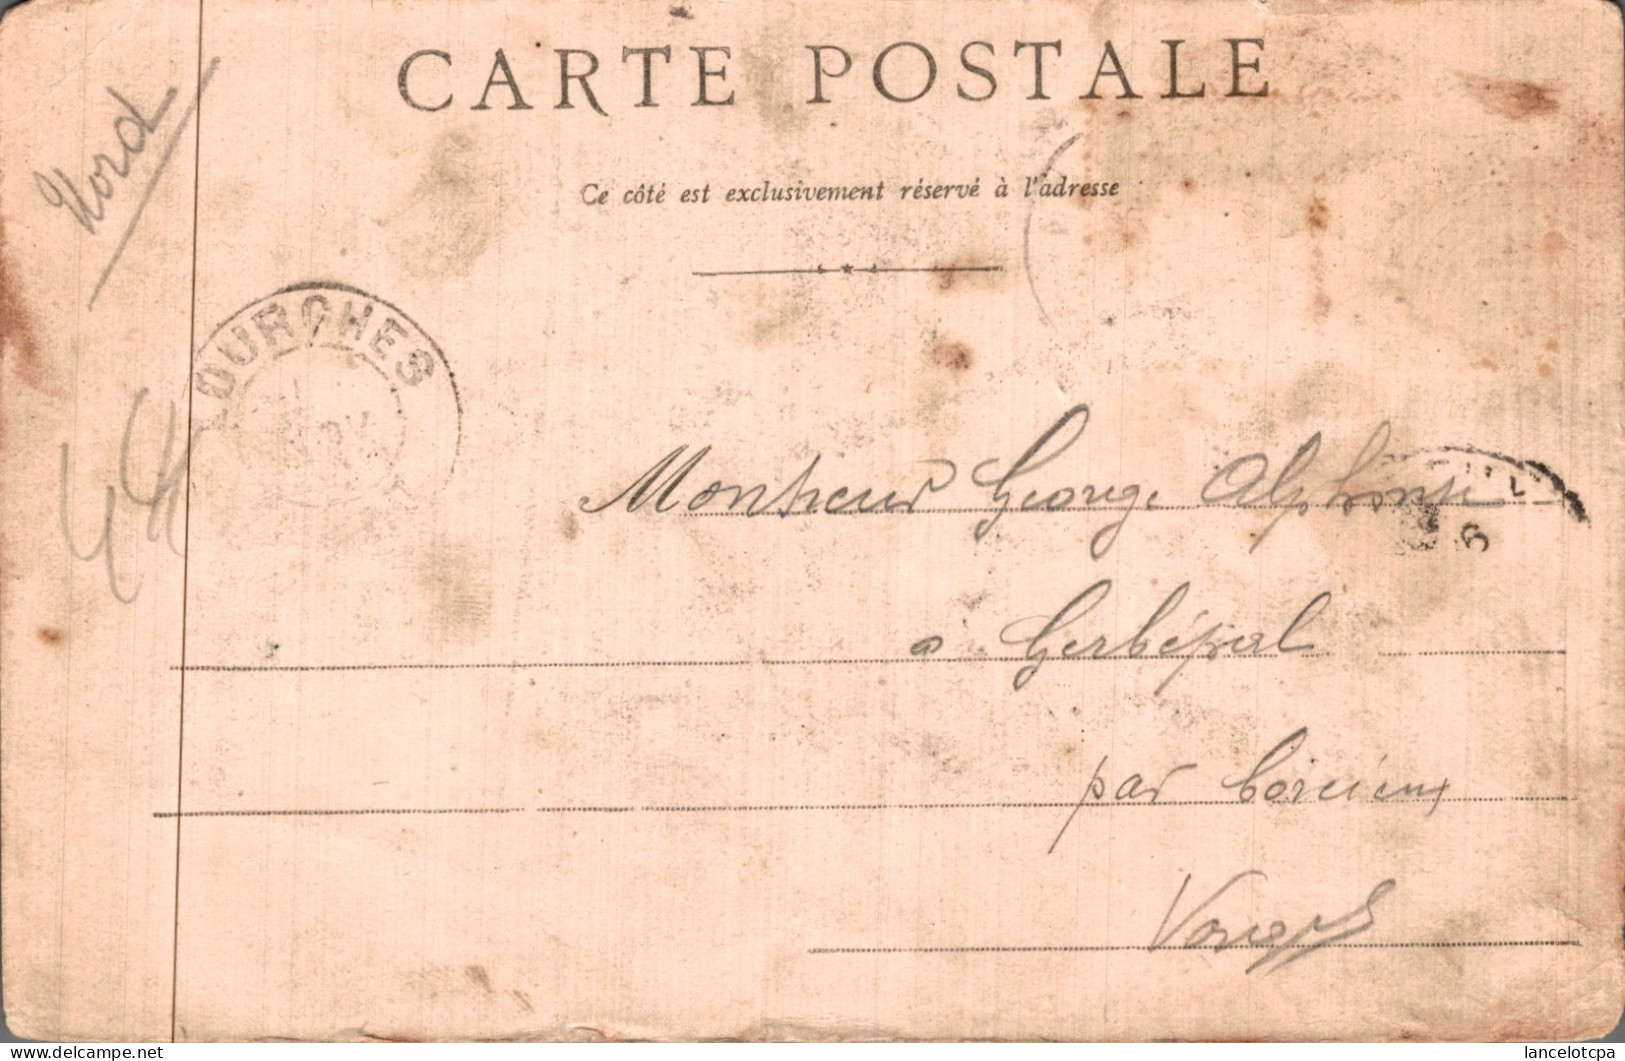 CARTE POSTALE
Ce côté est exclusivement réservé à l'adresse
Nord
OURCHES
44
Monsieur George Alphonse
6
a Gerbépal
par Corcieux
Vosges
lancelotcpa